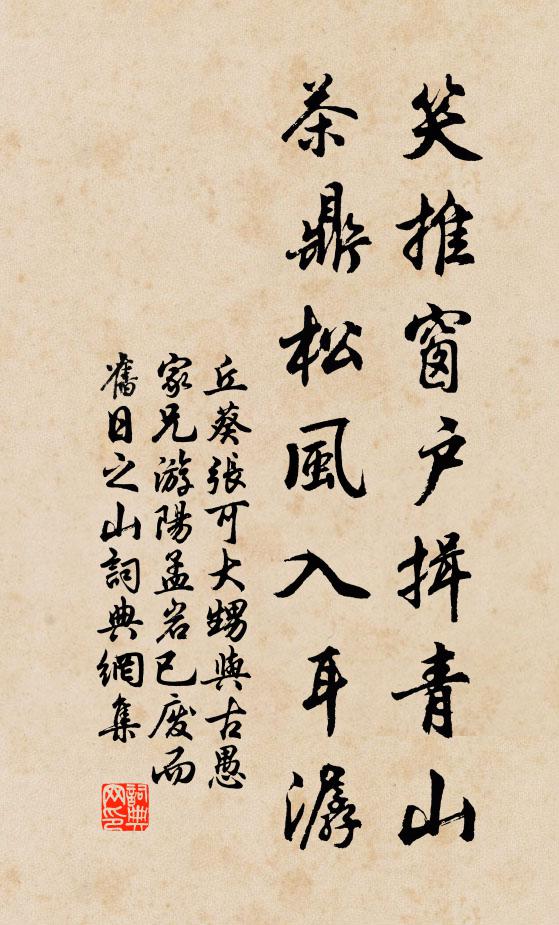 笑推窗户揖青山
茶鼎松風入耳潺
丘葵張可大甥與古愚
家兄游陽孟岩已废而
舊日之山詞典網集
詞典
网印